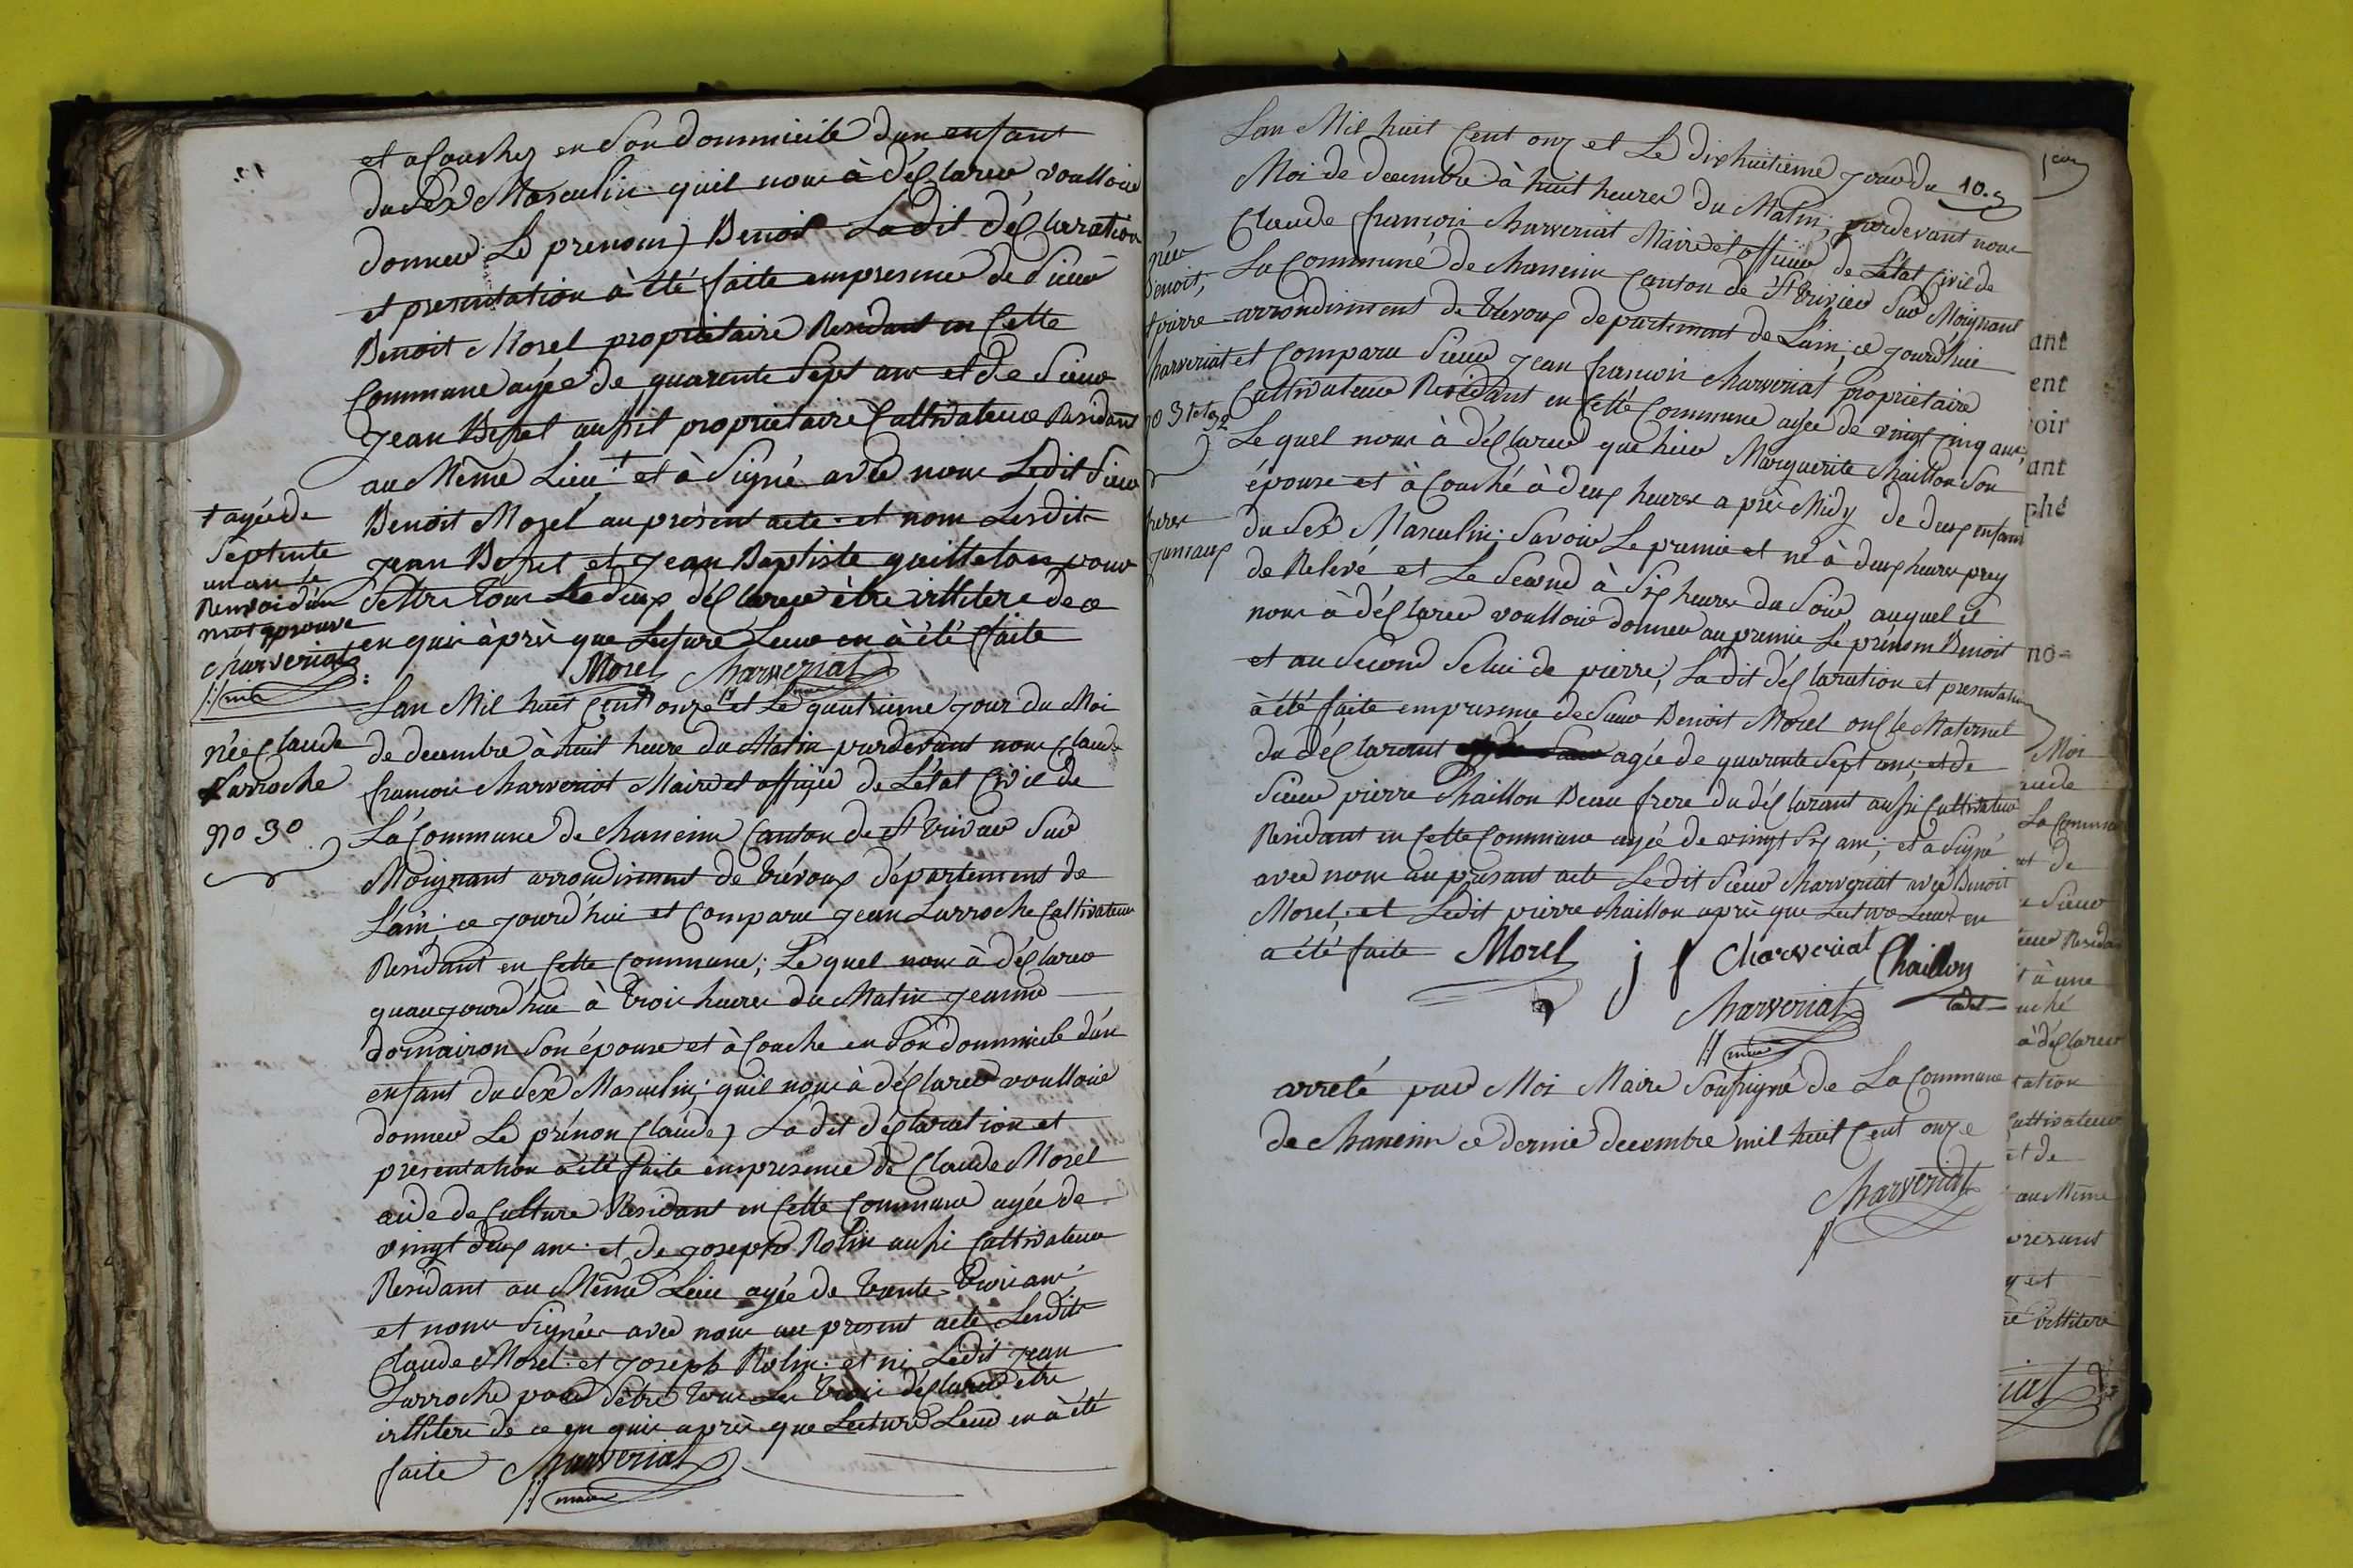 et acouchez en son dommicile dun enfant
du Sex Masculin quil nous à déClarer voulloir
donner Le prenom) Benoit La dit déClaration
et presentation à été faite empresence de Sieur
Benoit Morel propriétaire Residant en Cette
Commune agée de quarente Sept ans et de Sieur
Jean aussit propriétaire Cultivateur Residant
au Même Lieu + et à Signé avec nous Ledit Sieur
Benoit Morel au présent acte et nom Lesdits
Jean et Jean Baptiste guilleton pour
Settre tous Les deux déClarer être illitere de ce
en quis àpris que Lecture Leur en à été faite
+ agée de
Septente
un an le
Renvoi d'un
mot aprouvé
Charveriat
Maire
Morel Charveriat
née Claude
Larroche
No 30
Lan Mil huit Cent onze et Le quatrieme jour du Moi
de decembre à huit heure du Matin pardevant nous Claude
francois Charveriat Maire et officier de Létat Civil de
La Commune de Chaneins Canton de St trivier Sur
Moignant arrondisement de trévoux département de
Lain ce jourd'hui et Comparu Jean Larroche Cultivateur
Residant en Cette Commune; Le quel nous à déClarer
quaujourd'hui à trois heures du Matin Jeanne
domairon Son épouse et à Couche en Son dommicile d'un
enfant du Sex Masculin; quil nous à déClarer voulloir
donner Le prénon Claude) La dit déClaration et
présentation à été faite empresence de Claude Morel
aide de Culture Residant en Cette Commune agée de
vingt deux ans et de joseph Rolin aussi Cultivateur
Residant au Même Lieu agée de trente trois ans
et nous Signées avec nous au present acte Lesdits
Claude Morel et joseph Rolin et ni Ledit Jean
Larroche pour Settre tous Les trois déClarer etre
illitere de ce en quis après que Lecture Leur en à été
faite Charveriat
maire
10.
Lan Mil huit Cent onz et Le dixhuitieme jour du
Moi de decembre à huit heures du Matin; pardevant nous
Claude francois Charveriat Maire et officier de Létat Civil de
La Communé de Chaneins Canton de St trivier Sur Moignant
arrondisement de trévoux departement de Lain; ce jourdhui
et Comparu Sieur Jean francois Charveriat propriétaire
Cultivateur Residant en Cette Commune agée de vingt cinq ans;
Le quel nous à déClarer que hier Marguerite Chaillon Son
épouse et à Couché à deux heures a près Midy de deux enfans
du Sex Masculin; Savoir Le premier et né à deux heures prez
de Relevé et Le Second à Six heures du Soir, auquel il
nous à déClarer voulloir donner au premie Le prénom Benoit
et au Second Selui de pierre; La dit déClaration et presentation
à été faite empresence de Sieur Benoit Morel oncle Maternel
du déClarant agée de quarente Sept ans; et de
Sieur pierre Chaillon Beau frere du déClarant aussi Cultivateur
Residant en Cette Commune agée de vingt Six ans; et à Signé
avec nous au présant acte Ledit Sieur Charveriat avec Benoit
Morel, et Ledit pierre Chaillon après que Lecture Leur en
a été faite Morel j f Charveriat Chaillon
cadet
Charveriat
maire
née
Benoit,
et pierre
Charveriat
no 31 et 32
freres
jumeaux
arreté par Moi Maire Soussigné de La Commune
de Chaneins ce dernié decembre mil huit Cent onze
Charveriat
ant
ent
oir
ant
phé
no=
Moi
La Commune
et de
Sieur
à une
uché
à déClarer
ration
Cultivateur
et de
au Même
present
y et
illitere